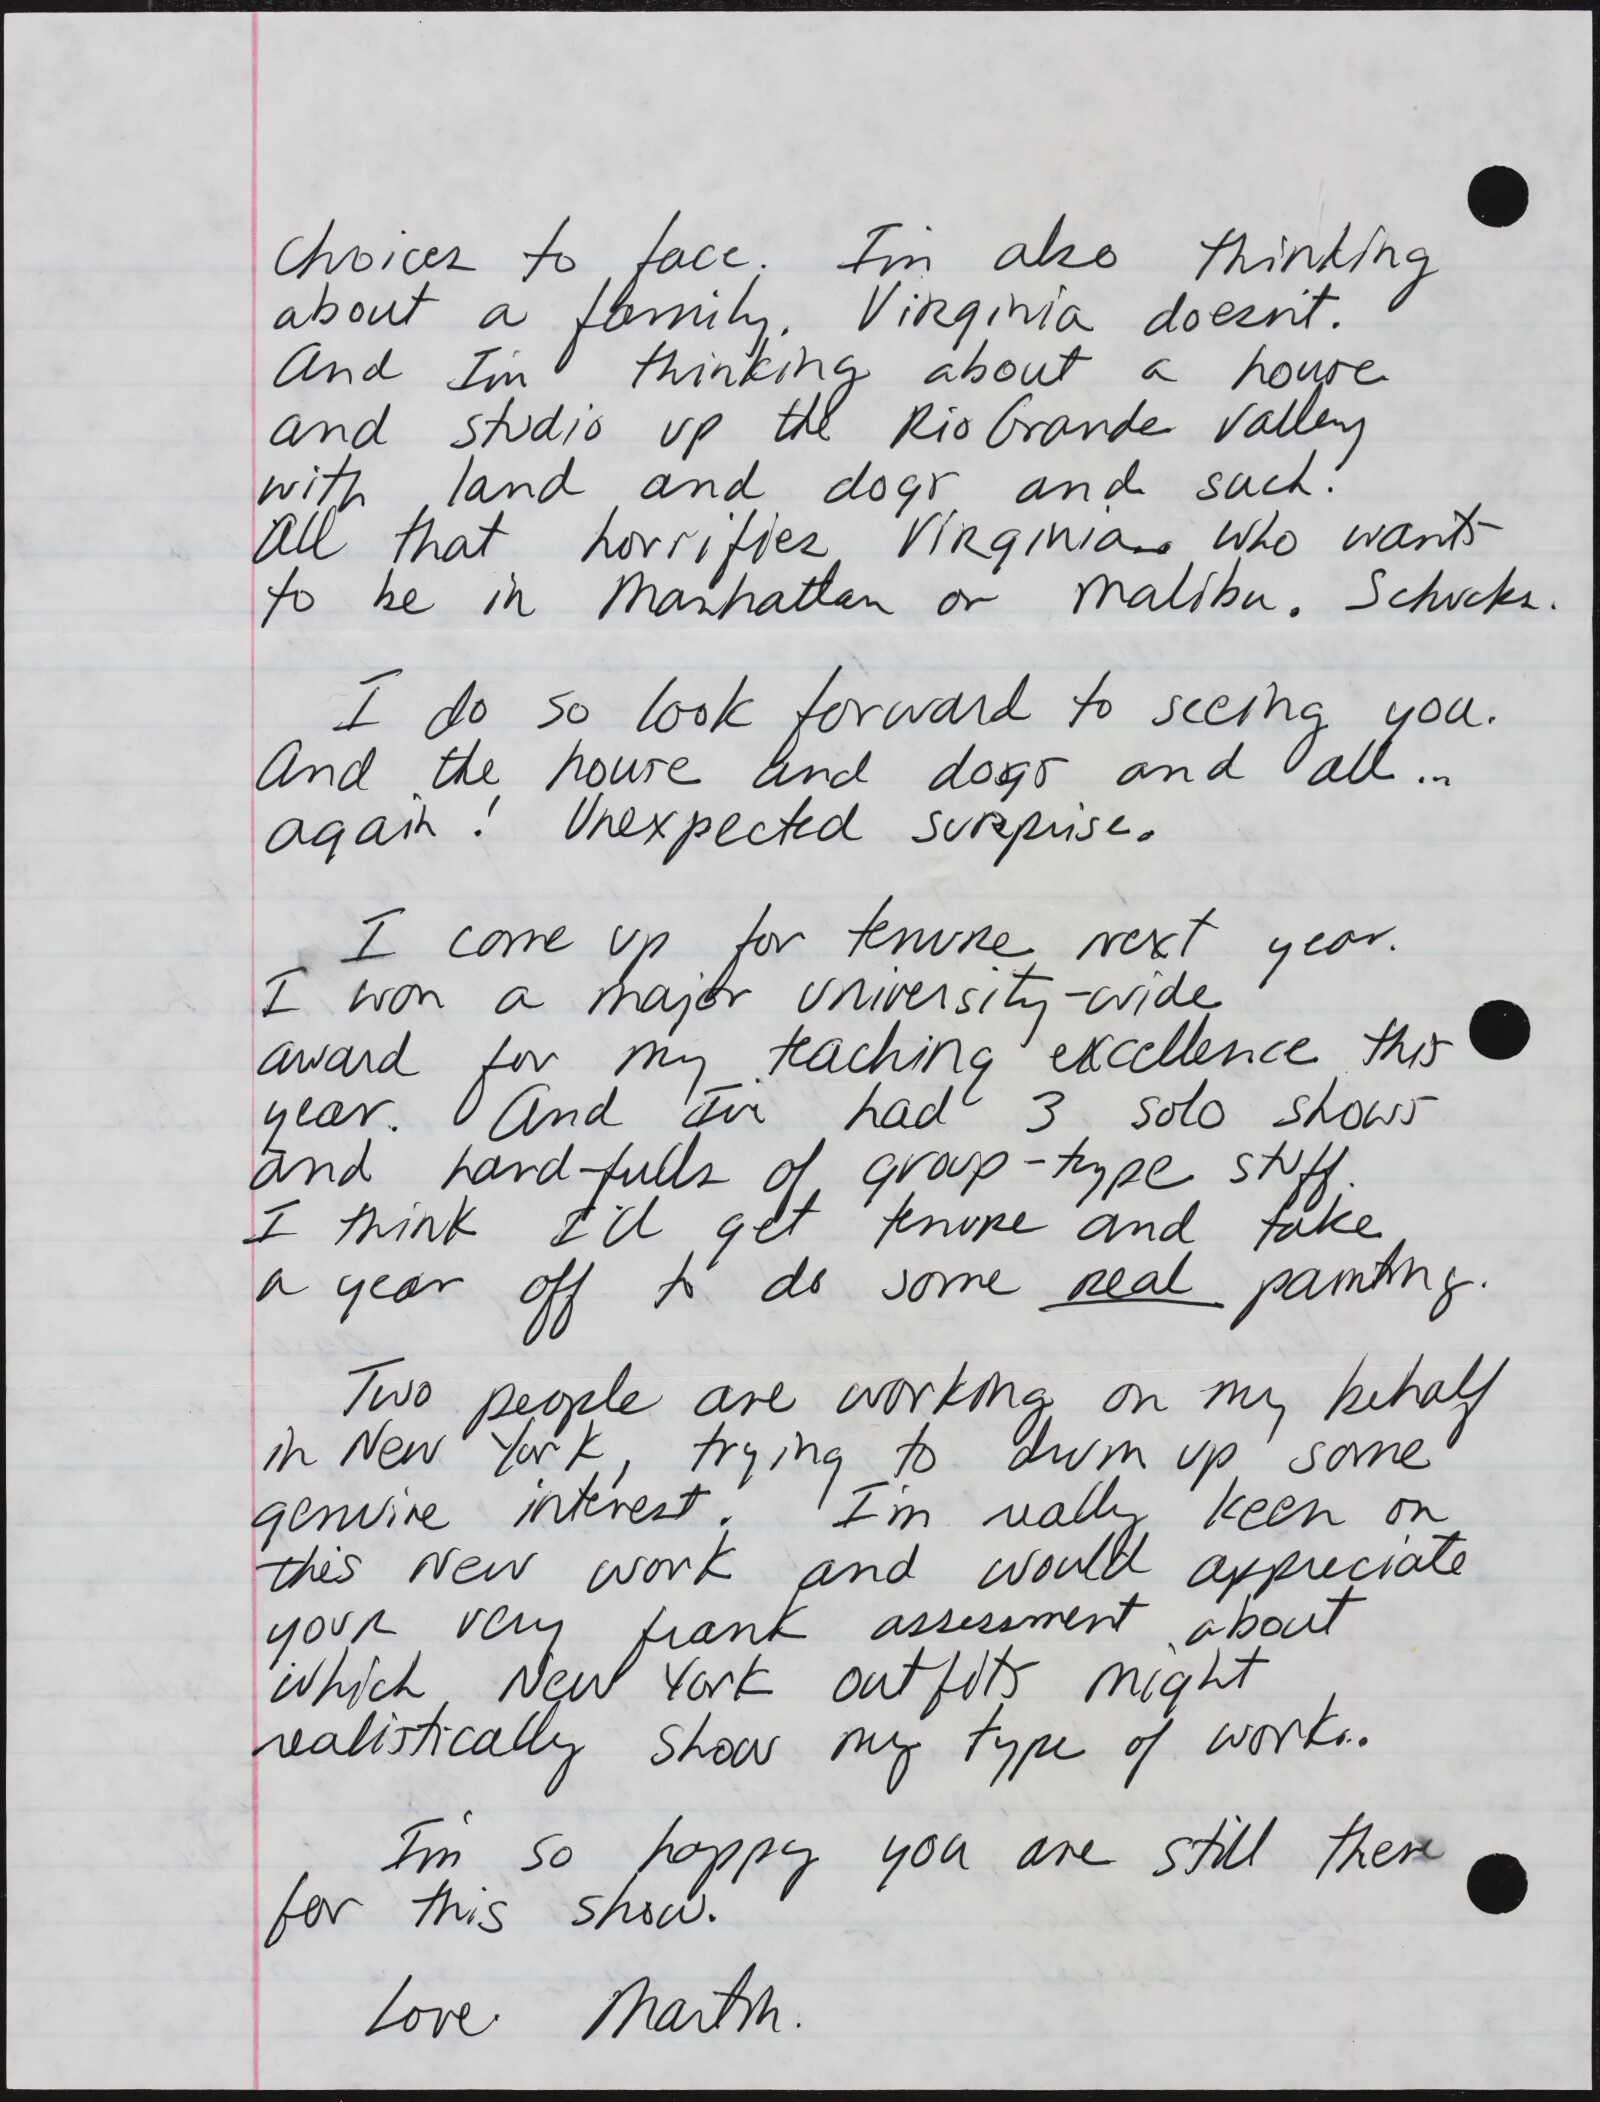 choices to face. I'm also thinking
about a family. Virginia doesn't.
And I'm thinking about a house
and studio up the Rio Grande Valley
with land and dogs and such.
All that horrifies Virginia.. who wants
to be in Manhattan or Malibu. Schucks.
I do so look forward to seeing you.
And the house and dogs and all...
again! Unexpected surprise.
I come up for tenure next year.
I won a major university-wide
award for my teaching excellence this
year. And I've had 3 solo shows
and hand-fulls of group-type stuff.
I think I'll get tenure and take
a year off to do some real painting.
Two people are working on my behalf
in New York, trying to drum up some
genuine interest. I'm really keen on
this new work and would appreciate
your very frank assessment about
which New York outfits might
realistically show my type of work..
I'm so happy you are still there
for this show.
Love Martin.